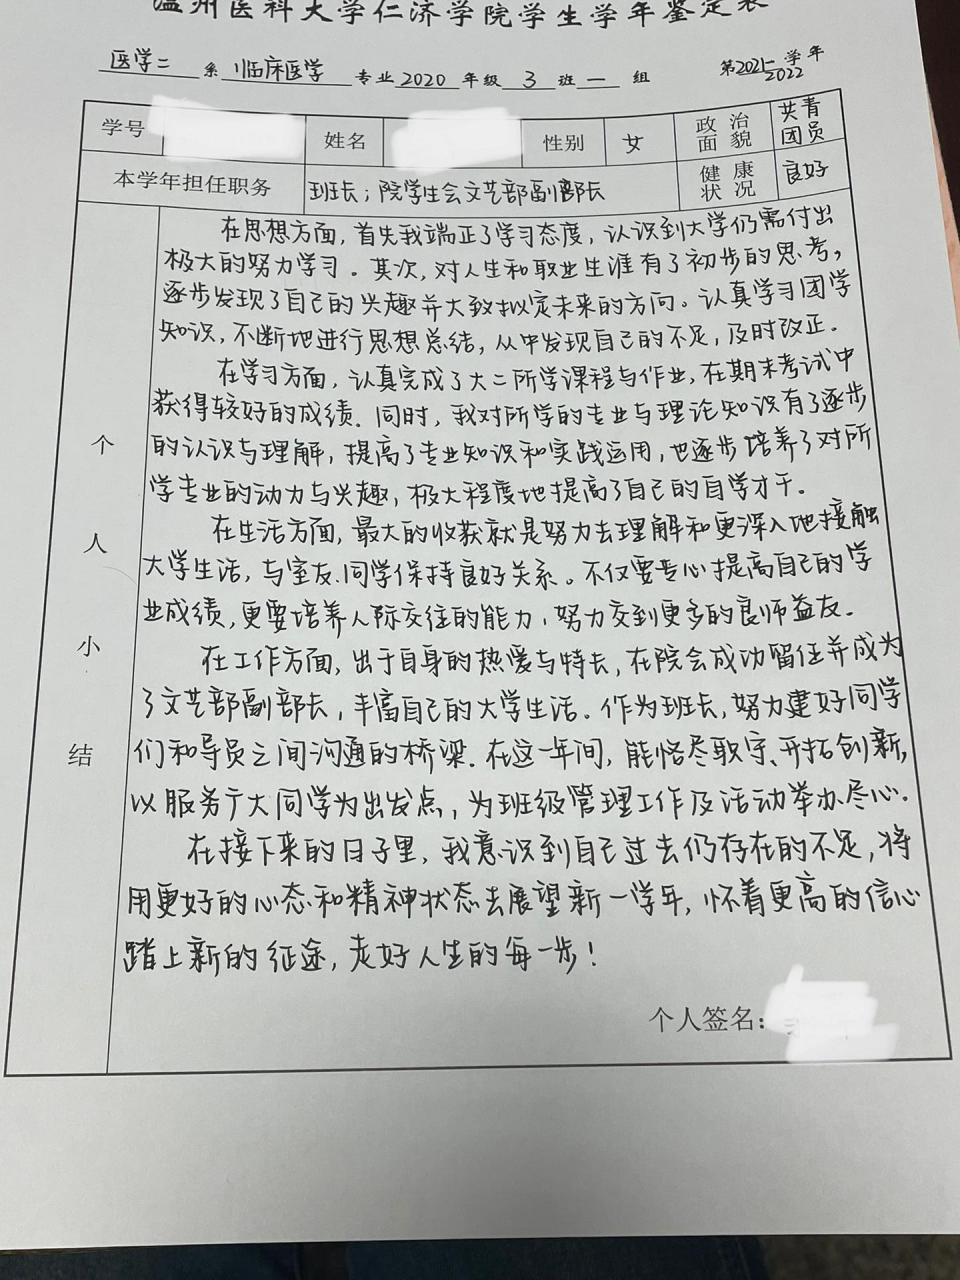 温州医科大学仁济学院学生学年鉴定表
医学二 系 临床医学 专业 2020 年级 3 班 一 组 第2021-2022学年
学号 姓名 性别 女 政治面貌 共青团员
本学年担任职务 班长；院学生会文艺部副部长 健康状况 良好
个人小结
在思想方面，首先我端正了学习态度，认识到大学仍需付出
极大的努力学习。其次，对人生和职业生涯有了初步的思考，
逐步发现了自己的兴趣并大致拟定未来的方向。认真学习团学
知识，不断地进行思想总结，从中发现自己的不足，及时改正。
在学习方面，认真完成了大二所学课程与作业，在期末考试中
获得较好的成绩．同时，我对所学的专业与理论知识有了逐步
的认识与理解，提高了专业知识和实践运用，也逐步培养了对所
学专业的动力与兴趣，极大程度地提高了自己的自学才干。
在生活方面，最大的收获就是努力去理解和更深入地接触
大学生活，与室友、同学保持良好关系。不仅要专心提高自己的学
业成绩，更要培养人际交往的能力，努力交到更多的良师益友．
在工作方面，出于自身的热爱与特长，在院会成功留任并成为
了文艺部副部长，丰富自己的大学生活．作为班长，努力建好同学
们和导员之间沟通的桥梁．在这一年间，能恪尽职守、开拓创新，
以服务广大同学为出发点，为班级管理工作及活动举办尽心．
在接下来的日子里，我意识到自己过去仍存在的不足，将
用更好的心态和精神状态去展望新一学年，怀着更高的信心
踏上新的征途，走好人生的每一步！
个人签名：